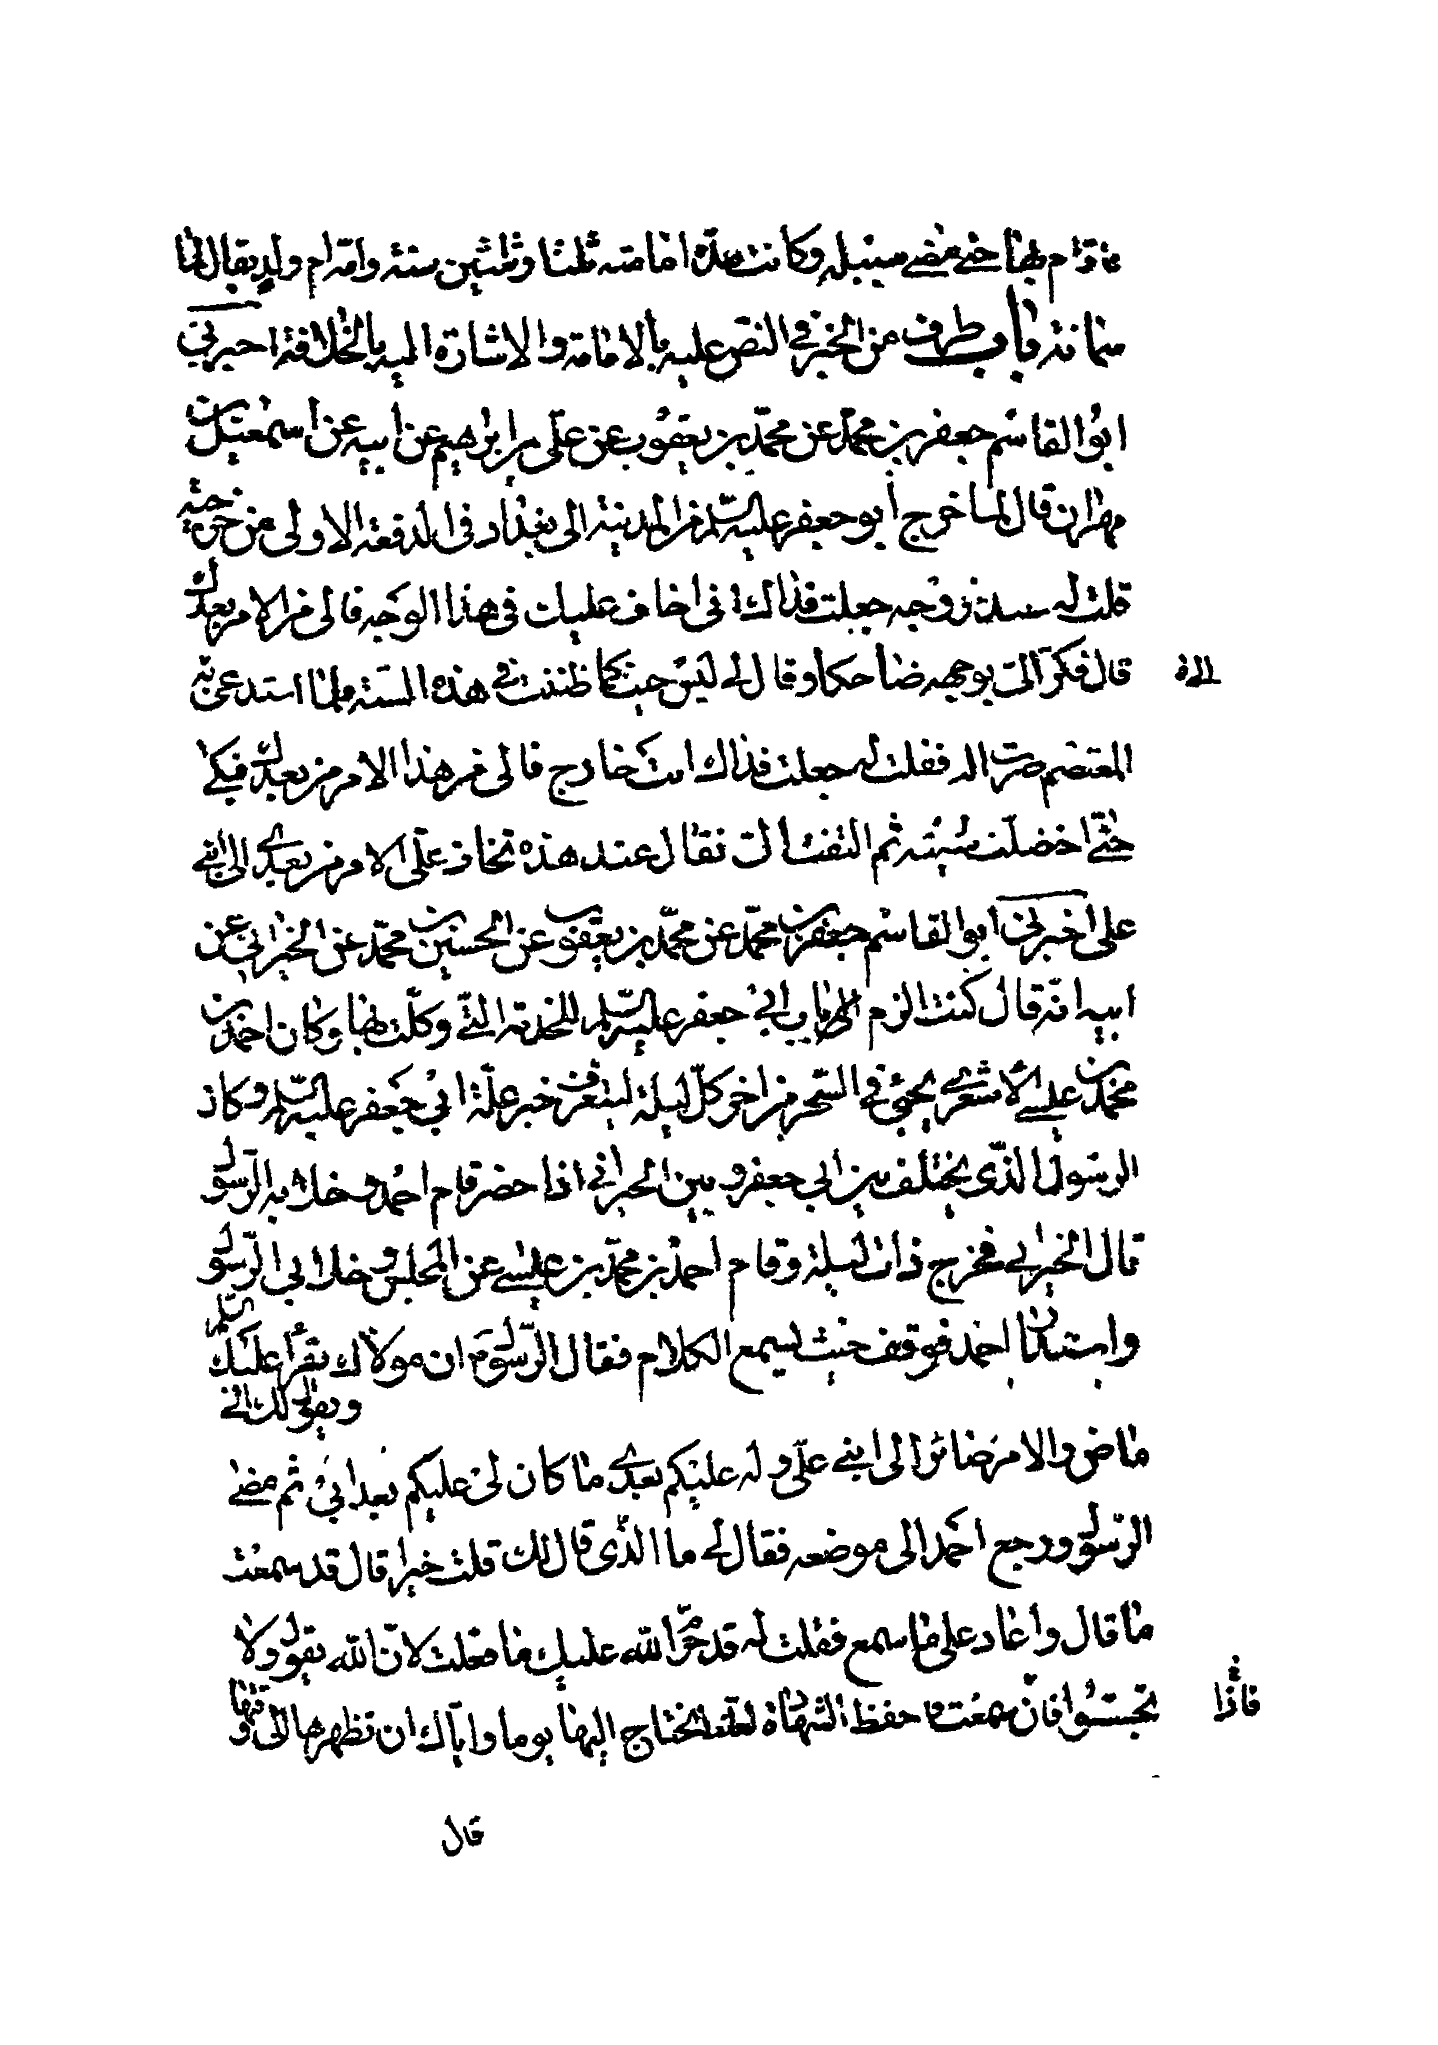 فاقام بها حتى مضى سبيله وكانت مدة امامته ثلثا وثلثين سنة وامه ام ولد يقال لها
سمانة باب طرف من الخبر في النص عليه بالامامة والاشارة اليه بالخلافة اخبرني
ابو القاسم جعفر بن محمد عن محمد بن يعقوب عن علي بن ابرهيم عن ابيه عن اسمعيل بن
مهران قال لما خرج ابو جعفر عليه السلم من المدينة الى بغداد في الدفعة الاولى من خرجتيه
قلت له عند خروجه جعلت فداك انى اخاف عليك في هذا الوجه فالى من الامر بعدك
قال فكر الي بوجهه ضاحكا وقال لي ليس حيث كما ظننت في هذه السنة فلما استدعى به
الى
المعتصم صرت اليه فقلت له جعلت فداك انت خارج فالى من هذا الامر من بعدك فبكى
حتى اخضلت لحيته ثم التفت الي فقال عند هذه يخاف علي الامر من بعدي الى ابني
علي اخبرني ابو القاسم جعفر بن محمد عن محمد بن يعقوب عن الحسين بن محمد عن الخيراني عن
ابيه انه قال كنت الزم باب ابي جعفر عليه السلم للخدمة التي وكلت بها وكان احمد بن
محمد بن عيسى الاشعري يجئ في السحر من اخر كل ليلة ليتعرف خبر علة ابي جعفر عليه السلم وكان
الرسول الذي يختلف بين ابي جعفر وبين الخيراني اذا حضر قام احمد وخلا به الرسول
قال الخيراني فخرج ذات ليلة وقام احمد بن محمد بن عيسى عن المجلس وخلا بي الرسول
واستدار احمد فوقف حيث يسمع الكلام فقال الرسول ان مولاك يقرأ عليك السلم
ويقول لك اني
ماض والامر صائر الى ابني علي وله عليكم بعدي ما كان لي عليكم بعد ابي ثم مضى
الرسول ورجع احمد الى موضعه فقال لي ما الذي قال لك قلت خيرا قال قد سمعت
ما قال واعاد علي ما سمع فقلت له قد حرم الله عليك ما فعلت لان الله يقول ولا
تجسسوا فان سمعت فاحفظ الشهادة لعلنا نحتاج اليها يوما واياك ان تظهرها الى وقتها
فاذا
قال